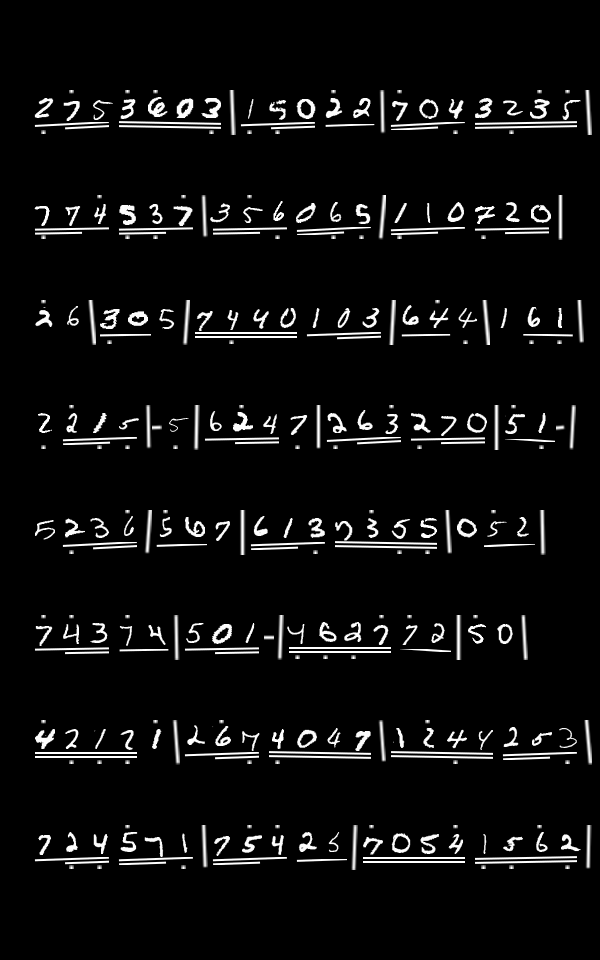 2 7 5 3 6 0 3 | 1 5 0 2 2 | 7 0 4 3 2 3 5 |
7 7 4 5 3 7 | 3 5 6 0 6 5 | 1 1 0 7 2 0 |
2 6 | 3 0 5 | 7 4 4 0 1 0 3 | 6 4 4 | 1 6 1 |
2 2 1 5 | - 5 | 6 2 4 7 | 2 6 3 2 7 0 | 5 1 - |
5 2 3 6 | 5 6 7 | 6 1 3 7 3 5 5 | 0 5 2 |
7 4 3 7 4 | 5 0 1 - | 4 6 2 7 7 2 | 5 0 |
4 2 1 2 1 | 2 6 7 4 0 4 7 | 1 2 4 4 2 5 3 |
7 2 4 5 7 1 | 7 5 4 2 5 | 7 0 5 4 1 5 6 2 |